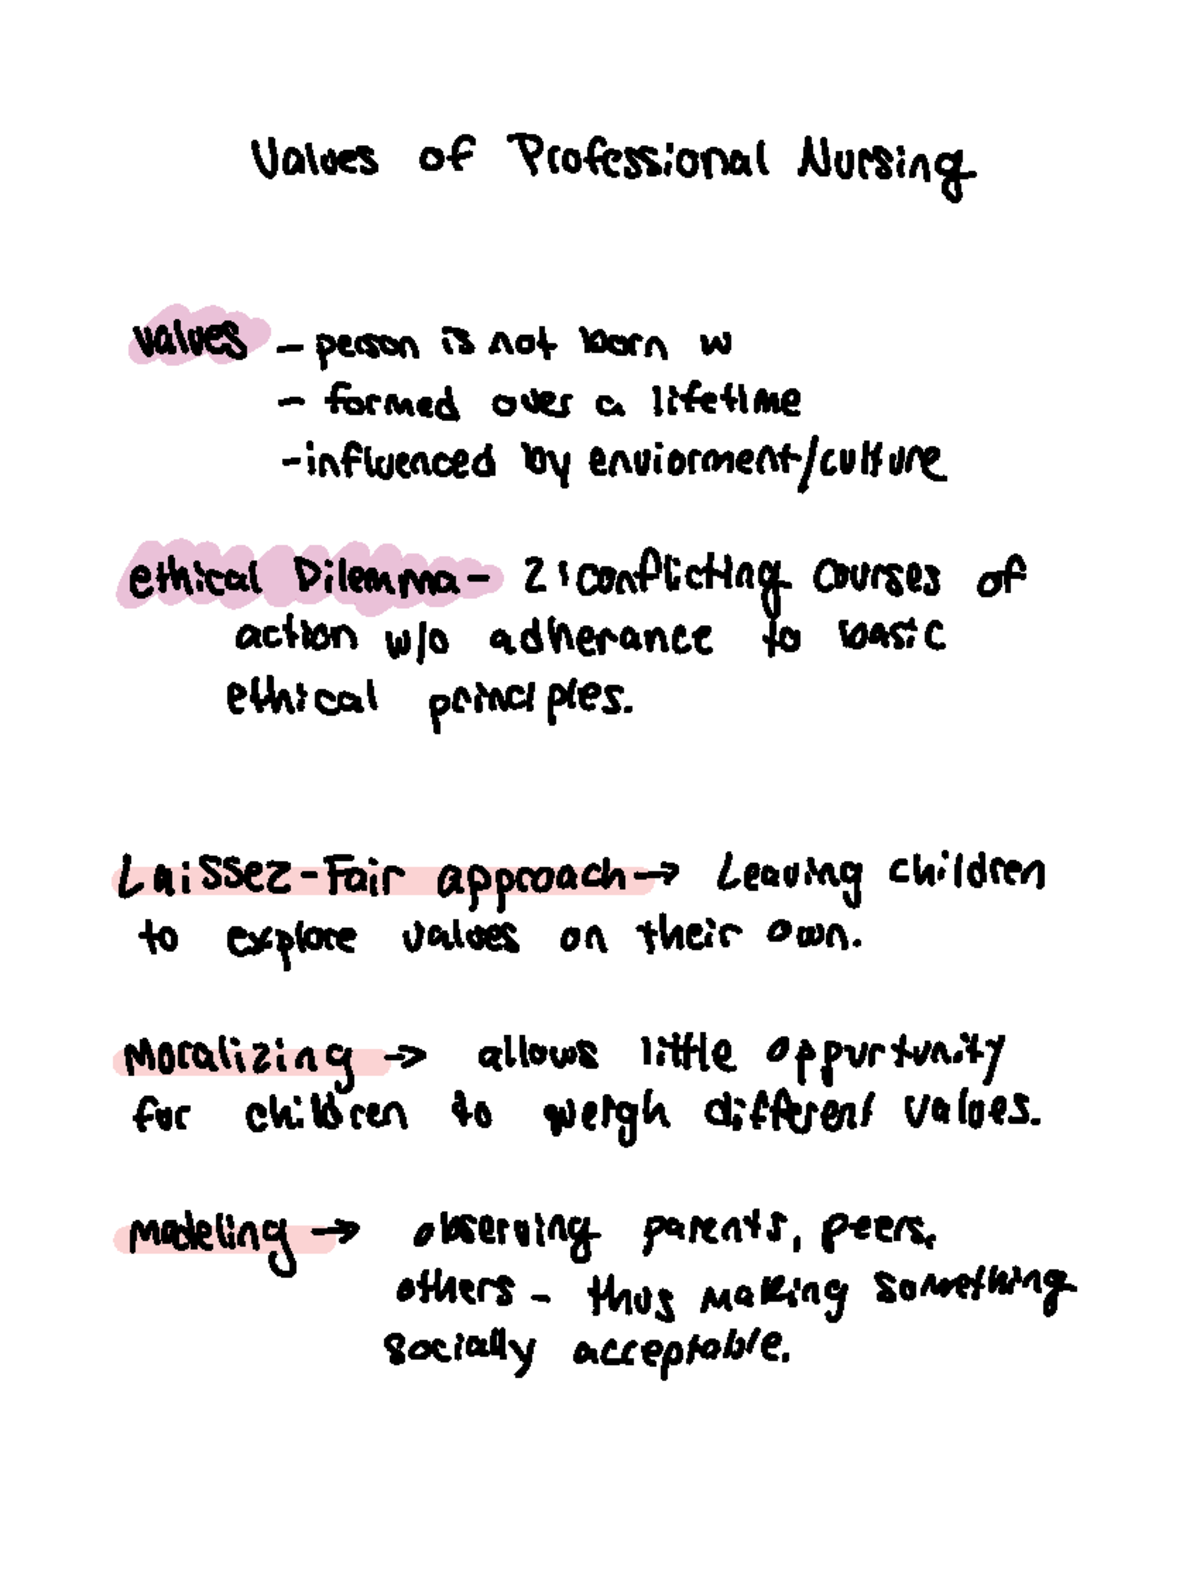 Values of Professional Nursing
values - person is not born w
- formed over a lifetime
-influenced by enviorment/culture
ethical Dilemma- 2: conflicting courses of
action w/o adherance to basic
ethical principles.
Laissez-Fair approach→ Leaving children
to explore values on their own.
Moralizing → allows little oppurtunity
for children to weigh different values.
modeling → observing parents, peers,
others - thus making something
socially acceptable.